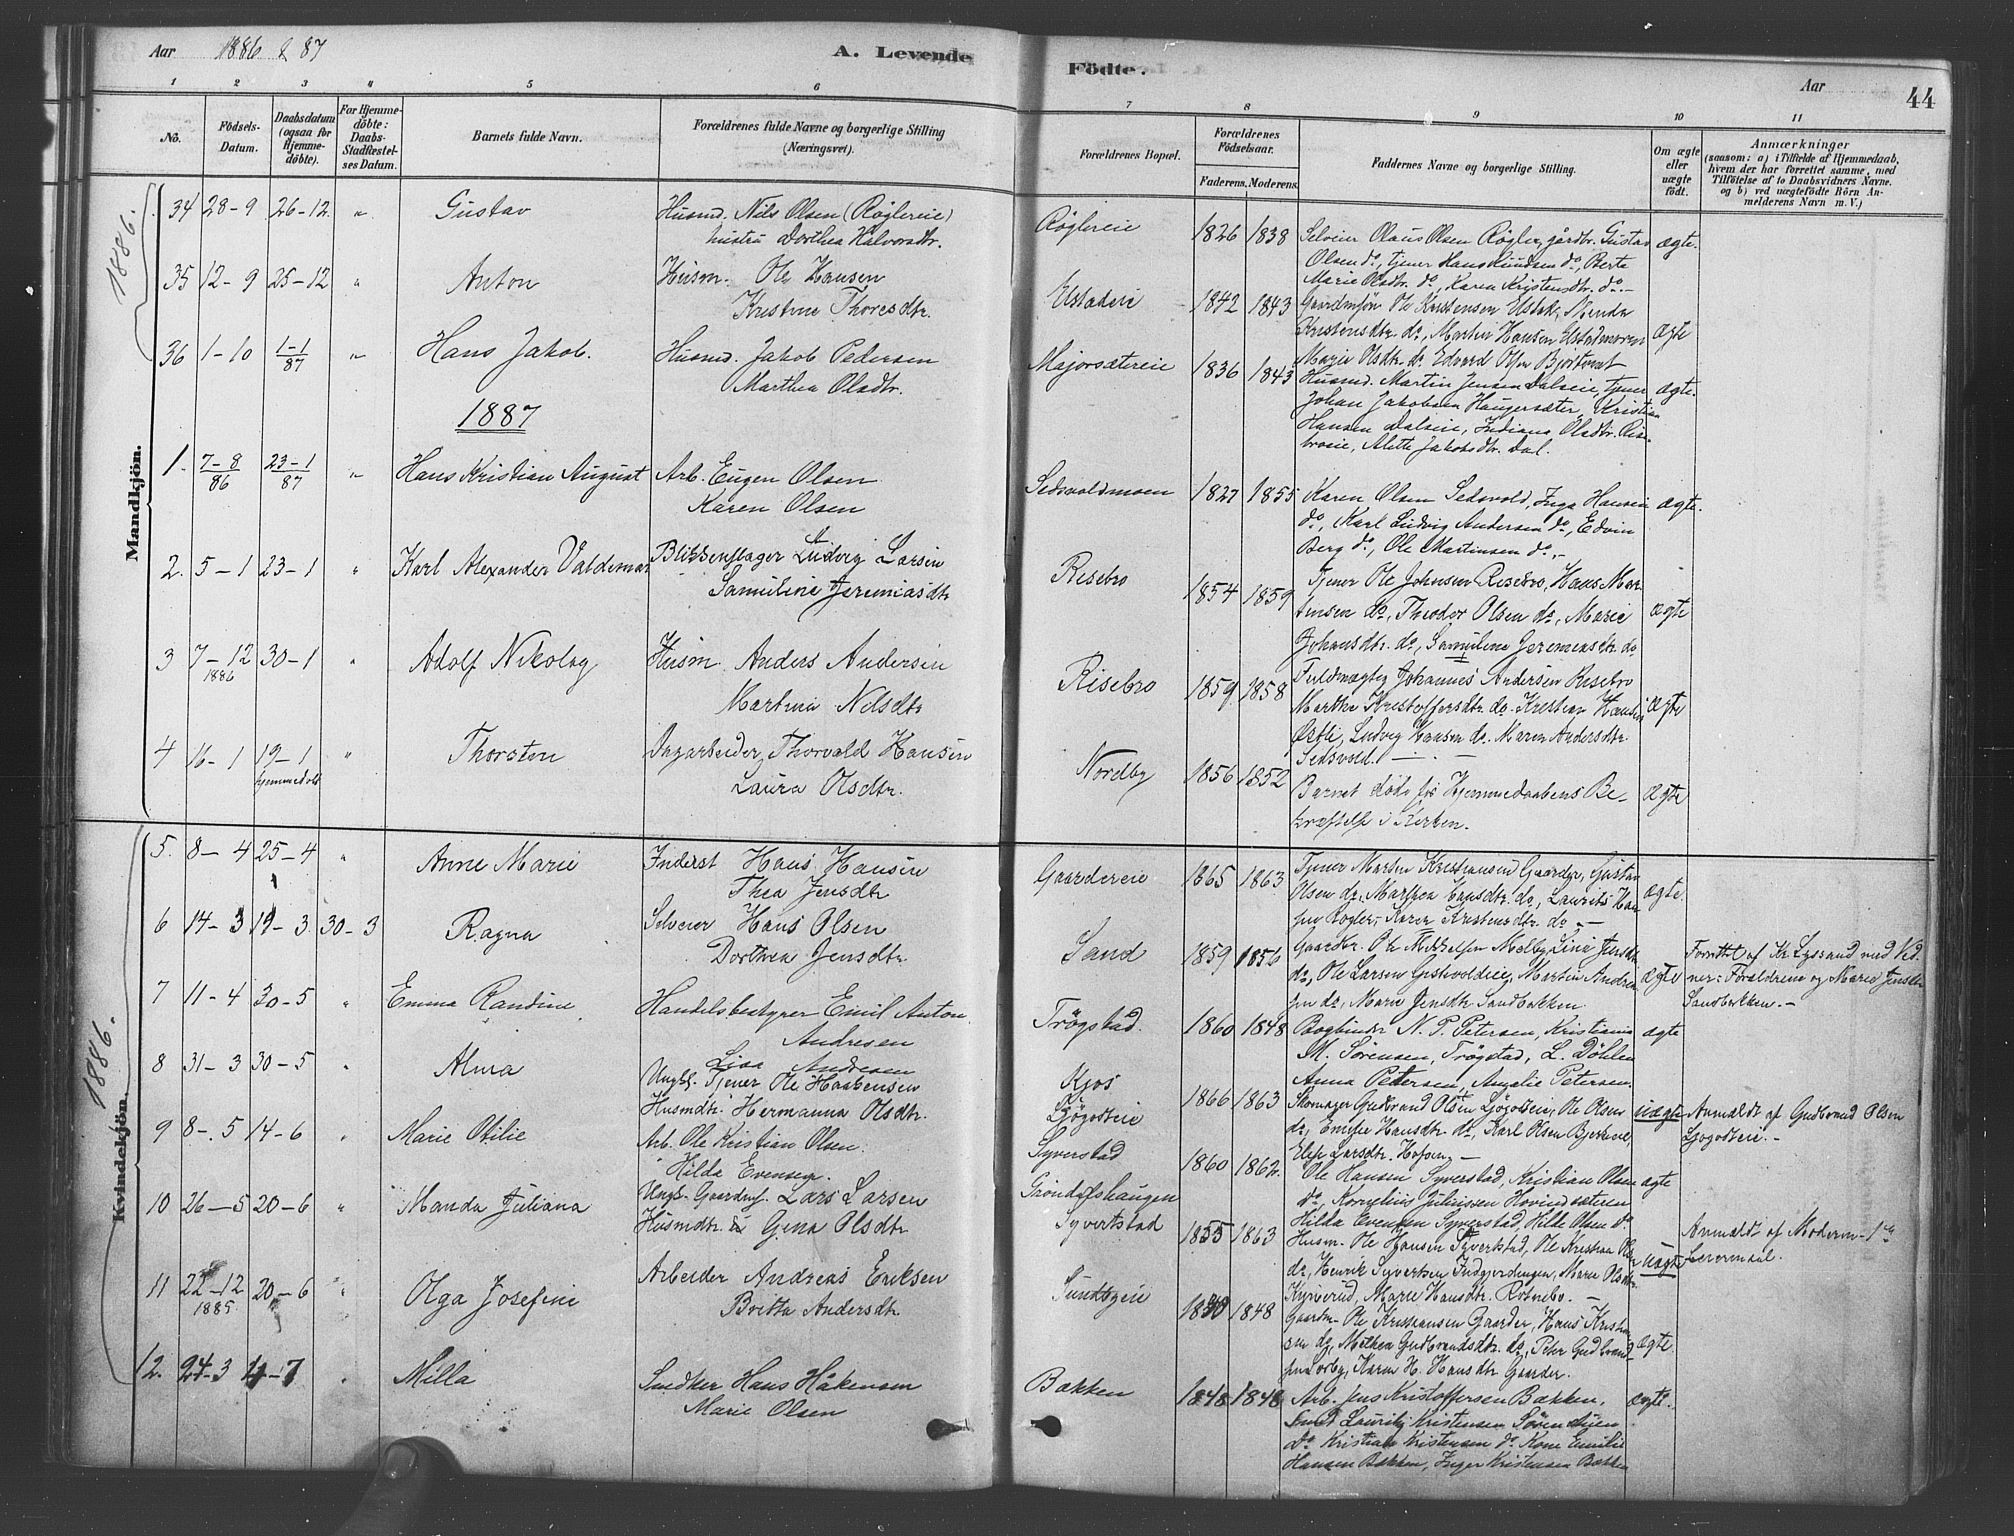 Aar 1886 & 87
A. Levende Födte.
Aar
44
1 2 3 4 5 6 7 8 9 10 11
No.
Födsels-Datum.
Daabsdatum (ogsaa for Hjemmedöbte).
For Hjemmedöbte: Daabs-Stadfæstelses Datum.
Barnets fulde Navn.
Forældrenes fulde Navne og borgerlige Stilling (Næringsvei).
Forældrenes Bopæl.
Forældrenes Födselsaar.
Faderens. Moderens.
Faddernes Navne og borgerlige Stilling.
Om ægte eller uægte födt.
Anmærkninger
(saasom: a) i Tilfælde af Hjemmedaab, hvem der har forrettet samme, med Tilföielse af to Daabsvidners Navne, og b) ved uægtefödte Börn Anmelderens Navn m. V.)
Mandkjön.
1886.
34 28-9 26-12 " Gustav
Husmd. Nils Olsen (Røglereie)
hustru Dorthea Halvorsdtr.
Røglereie 1826 1838
Selveier Olaus Olsen Røgler, gårdbr. Gustav
Olsen do, tjener Hans Knudsen do, Berte
Marie Olsdtr. do, Karen Kristensdtr. do.-
ægte.
35 12-9 25-12 " Anton
Husm. Ole Hansen
Kristine Thoresdtr.
Elstadeie 1842 1843
Gaardmsøn Ole Kristensen Elstad,
Kristensdtr. do, Martin Hansen Elstadmoen
Marie Olsdtr. do Edvard Olsen
ægte
36 1-10 1-1/87 " Hans Jakob.
Husmd. Jakob Pedersen
Marthea Olsdtr.
Majorsætereie 1836 1843
Husmd. Martin Jensen Dalseie, tjener
Johan Jakobsen Haugersæter, Kristian
Hansen Dalseie, Indiana Olsdtr. Ris-
broeie, Alette Jakobsdtr. Dal.
ægte.
1887
1. 7-8/86 23-1/87 " Hans Kristian August
Arb. Eugen Olsen
Karen Olsen
Sedsvoldmoen 1827 1855
Karen Olsen Sedsvold, Inga Hansen
do, Karl Ludvig Andersen do, Edvin
Berg do, Ole Martinsen do.-
ægte.
2. 5-1 23-1 " Karl Alexander Valdemar
Blikkenslager Ludvig Larsen
Samuline Jeremiasdtr
Risebro 1854 1859
Tjener Ole Johnsen Risebro, Hans Mar-
tinsen do, Theodor Olsen do, Marie
Johansdtr. do, Samuline Jeremiasdtr. do
ægte
3 7-12 1886 30-1 " Adolf Nikolay
Husm. Anders Andersen
Martina Nilsdtr
Risebro 1859 1858
Fuldmægtig Johannes Andersen Risebro
Marthe Kristoffersdtr. do. Kristian Hansen
Østli, Ludvig Hansen do. Maren Andersdtr.
Sedsvold. -
ægte
4 16-1 19-1 hjemmedöbt " Thorsten
Dagarbeider Thorvald Hansen
Laura Olsdtr.
Nordby 1856 1852
Barnet döde før Hjemmedaabens Be-
kræftelse i Kirken.
ægte
Kvindekjön.
1886.
5. 8-4 25-4 " Anne Marie
Inderst Hans Hansen
Thea Jensdtr
Gaardereie 1865 1863
Tjener Martin Kristiansen Gaarder, Gustav
Olsen do, Marthea Hansdtr. do, Laurits Han-
sen Røgler, Karen Kristensdtr. do -
ægte.
6 14-3 19-3. 30-3 Ragna
Selveier Hans Olsen
Dorthea Jensdtr
Sand 1859 1856
Gaardbr. Ole Mikkelsen Melby, Lina Jensdtr
do, Ole Larsen Gistvoldeie, Martin Andre-
sen do, Marie Jensdtr Sandbakken.
ægte
Forrettet af Kr. Lyssand med Vid-
ner: Forældrene og Marie Jensdtr
Sandbakken.-
7 11-4 30-5 " Emma Randine
Handelsbestyrer Emil Anton
Andresen
Lisa Andresen
Trøgstad. 1860 1848
Bogbinder N. P. Petersen, Kristiania
M. Sørensen, Trøgstad, L. Döhlen
Anna Petersen, Amalie Petersen.
ægte
8 31-3 30-5 " Alma
Ungk. Tjener Ole Haabensen
Husmdtr. Hermanna Olsdtr.
Kjos
Ljøgodteie 1866 1863
Skomager Gudbrand Olsen Ljøgodteie, Ole Olsen
do, Emilie Hansdtr. do, Karl Olsen Bjerkene,
Elise Larsdtr. -
uægte
Anmeldt af Gudbrand Olsen
Ljøgodteie.-
9 8-5 14-6 " Marie Otilie
Arb. Ole Kristian Olsen.
Hilda Evensen.
Syverstad 1860 1862.
Ole Hansen Syverstad, Kristian Olsen
do, Kornelius Juliussen Hovindsæteren
Hilda Evensen Syverstad, Hilde Olsen do
ægte
10 26-5 20-6 " Manda Juliana
Ungk. Gaardms. Lars Larsen
Husmdtr. Gina Olsdtr
Grøndalshaugen
Syvertstad 1855 1863
Husm. Ole Hansen Syverstad, Ole Kristian Ols-
do, Henrik Syvertsen Indgjerdingen, Marie Olsdtr.
Kynnerud, Marie Hansdtr. Rotnebo. -
uægte
Anmeldt af Moderen - 1ste
Leiermaal.
11 22-12 1885. 20-6 " Olga Josefine
Arbeider Andreas Eriksen
Britta Andersdtr.
Sundbyeie 1850 1848
Gaardm. Ole Kristiansen Gaarder, Hans Kristian-
sen do, Mathea Gudbrandsdtr. do, Peter Gudbrand-
sen Sørby, Karen H. Hansdtr Gaarder.
ægte.
12. 24-3 4-7 " Milla
Snedker Hans Håkensen
Marie Olsen
Bakken 1848 1848
Arb. Jens Kristoffersen Bakken,
Smed Lauritz Kristensen
do Kristian Kristensen do Kone Emilie
Hansen Bakken, Inger Kristensen Bakken
ægte.